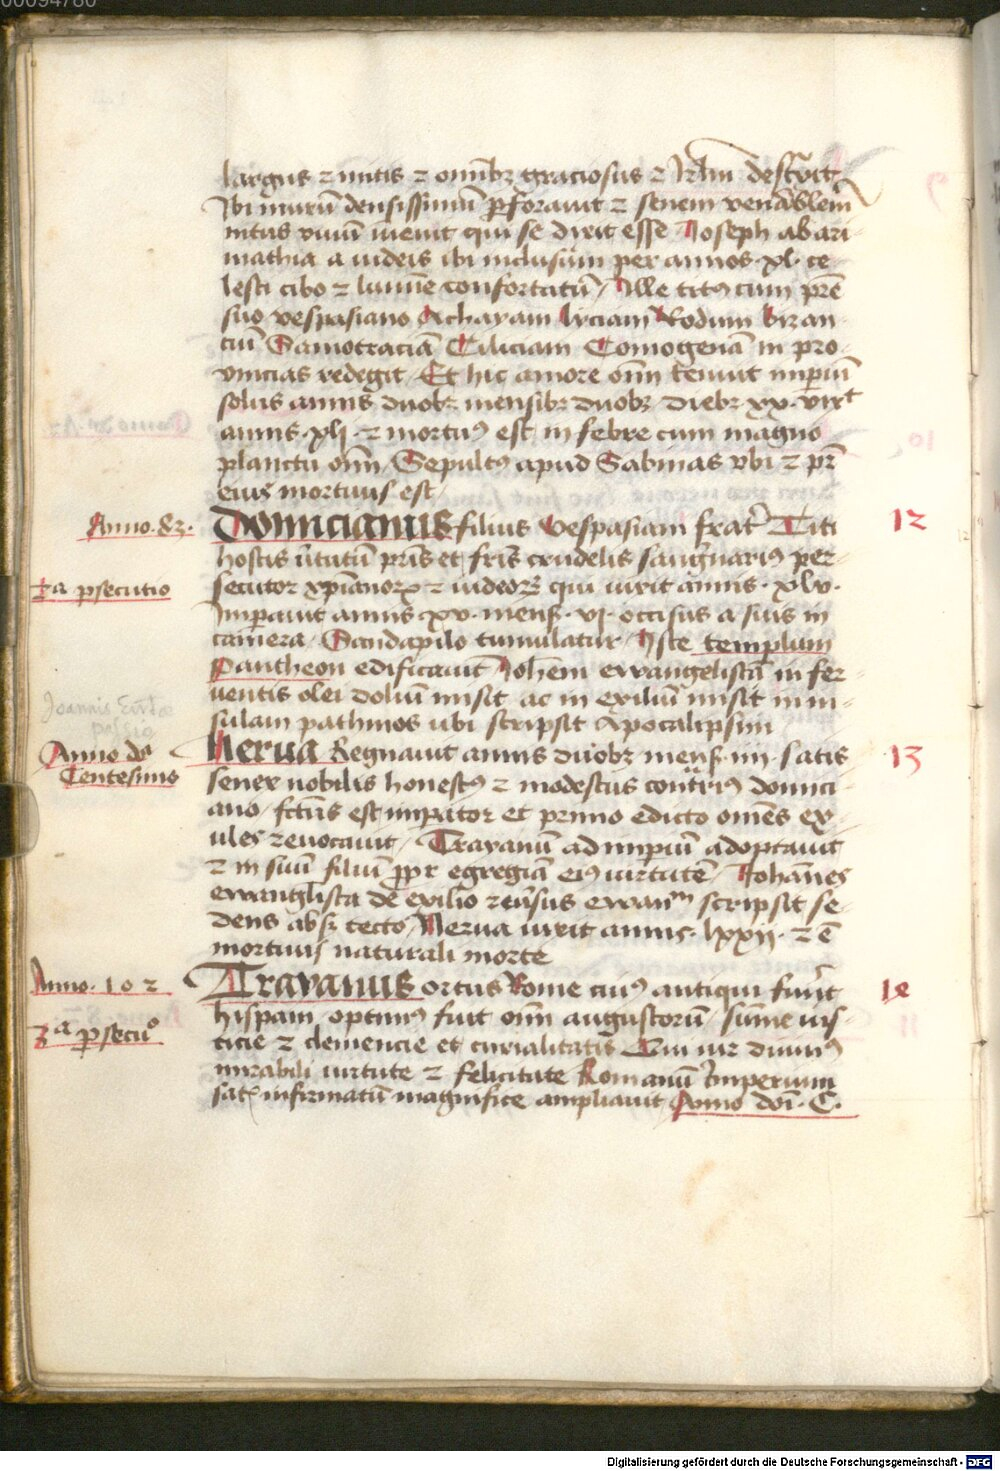 largus ⁊ mitis ⁊ omnibꝫ graciosus ⁊ Jrlm̄ destrūit
Ibi murū densissimū ꝑforauit ⁊ senem venābilem
intus viuū īuenit qui se dixit esse Joseph ab ari
mathia a iudeis ibi inclusum per annos · xl · ce
lesti cibo ⁊ lumīe confortatū / Ille titꝰ cum pr̄e
suo vespasiano Achayam lyciam Rodum bizan
ciū Samotraciā Ciliciam Comogenā in pro
uincias redegit / Et hic amore om̄i tenuit imperiū
solus annis duobꝫ mensibꝫ duobꝫ diebꝫ xx · vixt
annis · xli · ⁊ mortuꝰ est in febre cum magno
planctu om̄i / Sepultꝰ apud Sabinas vbi ⁊ pr̄
eius mortuus est
Anno · 82 · Domicianus filius Vespasiani frater Titi 12
hostis v̄tutū pr̄is et fr̄is crudelis sanguinariꝰ per
2ª ꝑsecutio secutor xp̄ianoꝝ ⁊ iudeoꝝ qui vixit annis · xlv ·
Imperauit annis xv · mens · vi · occisus a suis in
camera / Sandapilo tumulatur / Iste templum
Pantheon edificauit Johēm ewangelistā in fer
uentis olei doliū misit ac in exiliū misit in in
Joannis Eu͡ste passio sulam pathmos ubi scripsit Apocalipsim
Anno dni Centesimo Nerua Regnauit annis duobꝫ mens · iiii · satis 13
senex nobilis honestꝰ ⁊ modestus cōtrariꝰ domici
ano / fc̄us est imperator et primo edicto omēs ex
ules reuocauit / Trayanū ad imperiū adoptauit
⁊ in suū filiū ꝓpter egregiā eiꝰ virtutē / Johānes
ewanglista de exilio reuersus ewanm scripsit se
dens absꝫ tecto / Nerua vixit annis · lxxij · ⁊ ē
mortuus naturali morte
Anno · 102 Trayanus ortus Rome cuiꝰ antiqui fuēr̄t 14
3ª ꝑsecuo hispani optimꝰ fuit om̄i augustorū / sūme ius
ticie ⁊ clemencie et curialitatis Qui vir diuinꝰ
mirabili virtute ⁊ felicitate Romanū Imperium
satis infirmatū magnifice ampliauit Anno dn̄i · C ·
Digitalisierung gefördert durch die Deutsche Forschungsgemeinschaft - DFG